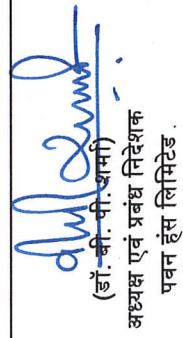 (डॉ. बी. पी. शर्मा)
अध्यक्ष एवं प्रबंध निदेशक
पवन हंस लिमिटेड.